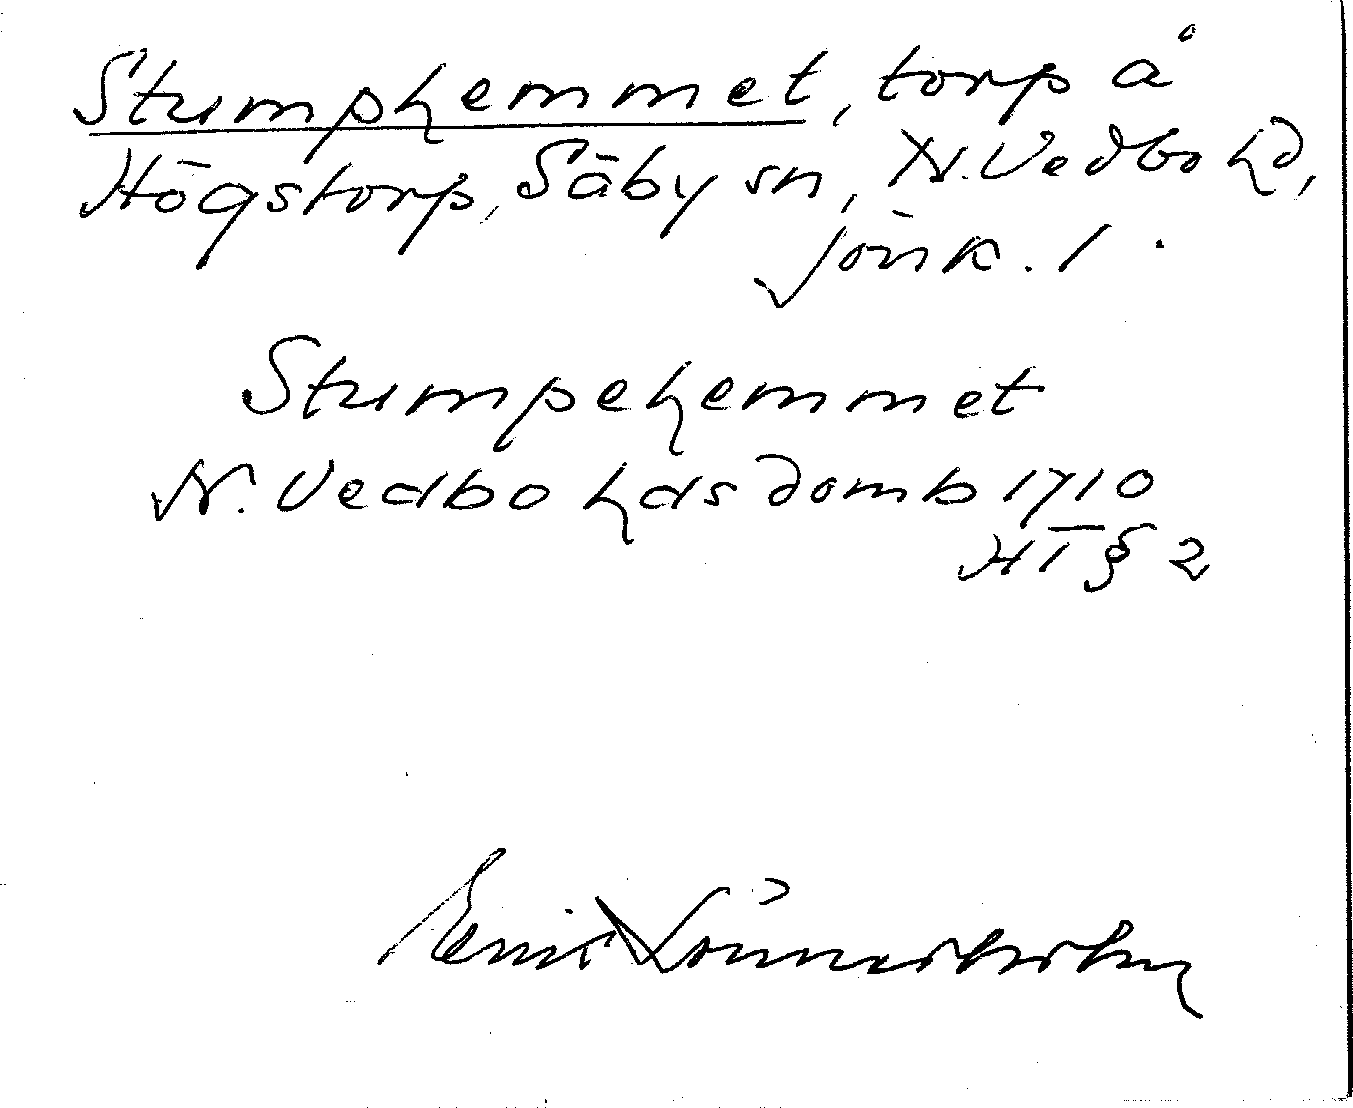 Stumphemmet, torp å
Högstorp, Säby sn, N. Vedbo hd,
Jönk. l.
Stumpehemmet
N. Vedbo hds domb 1710
HT § 2